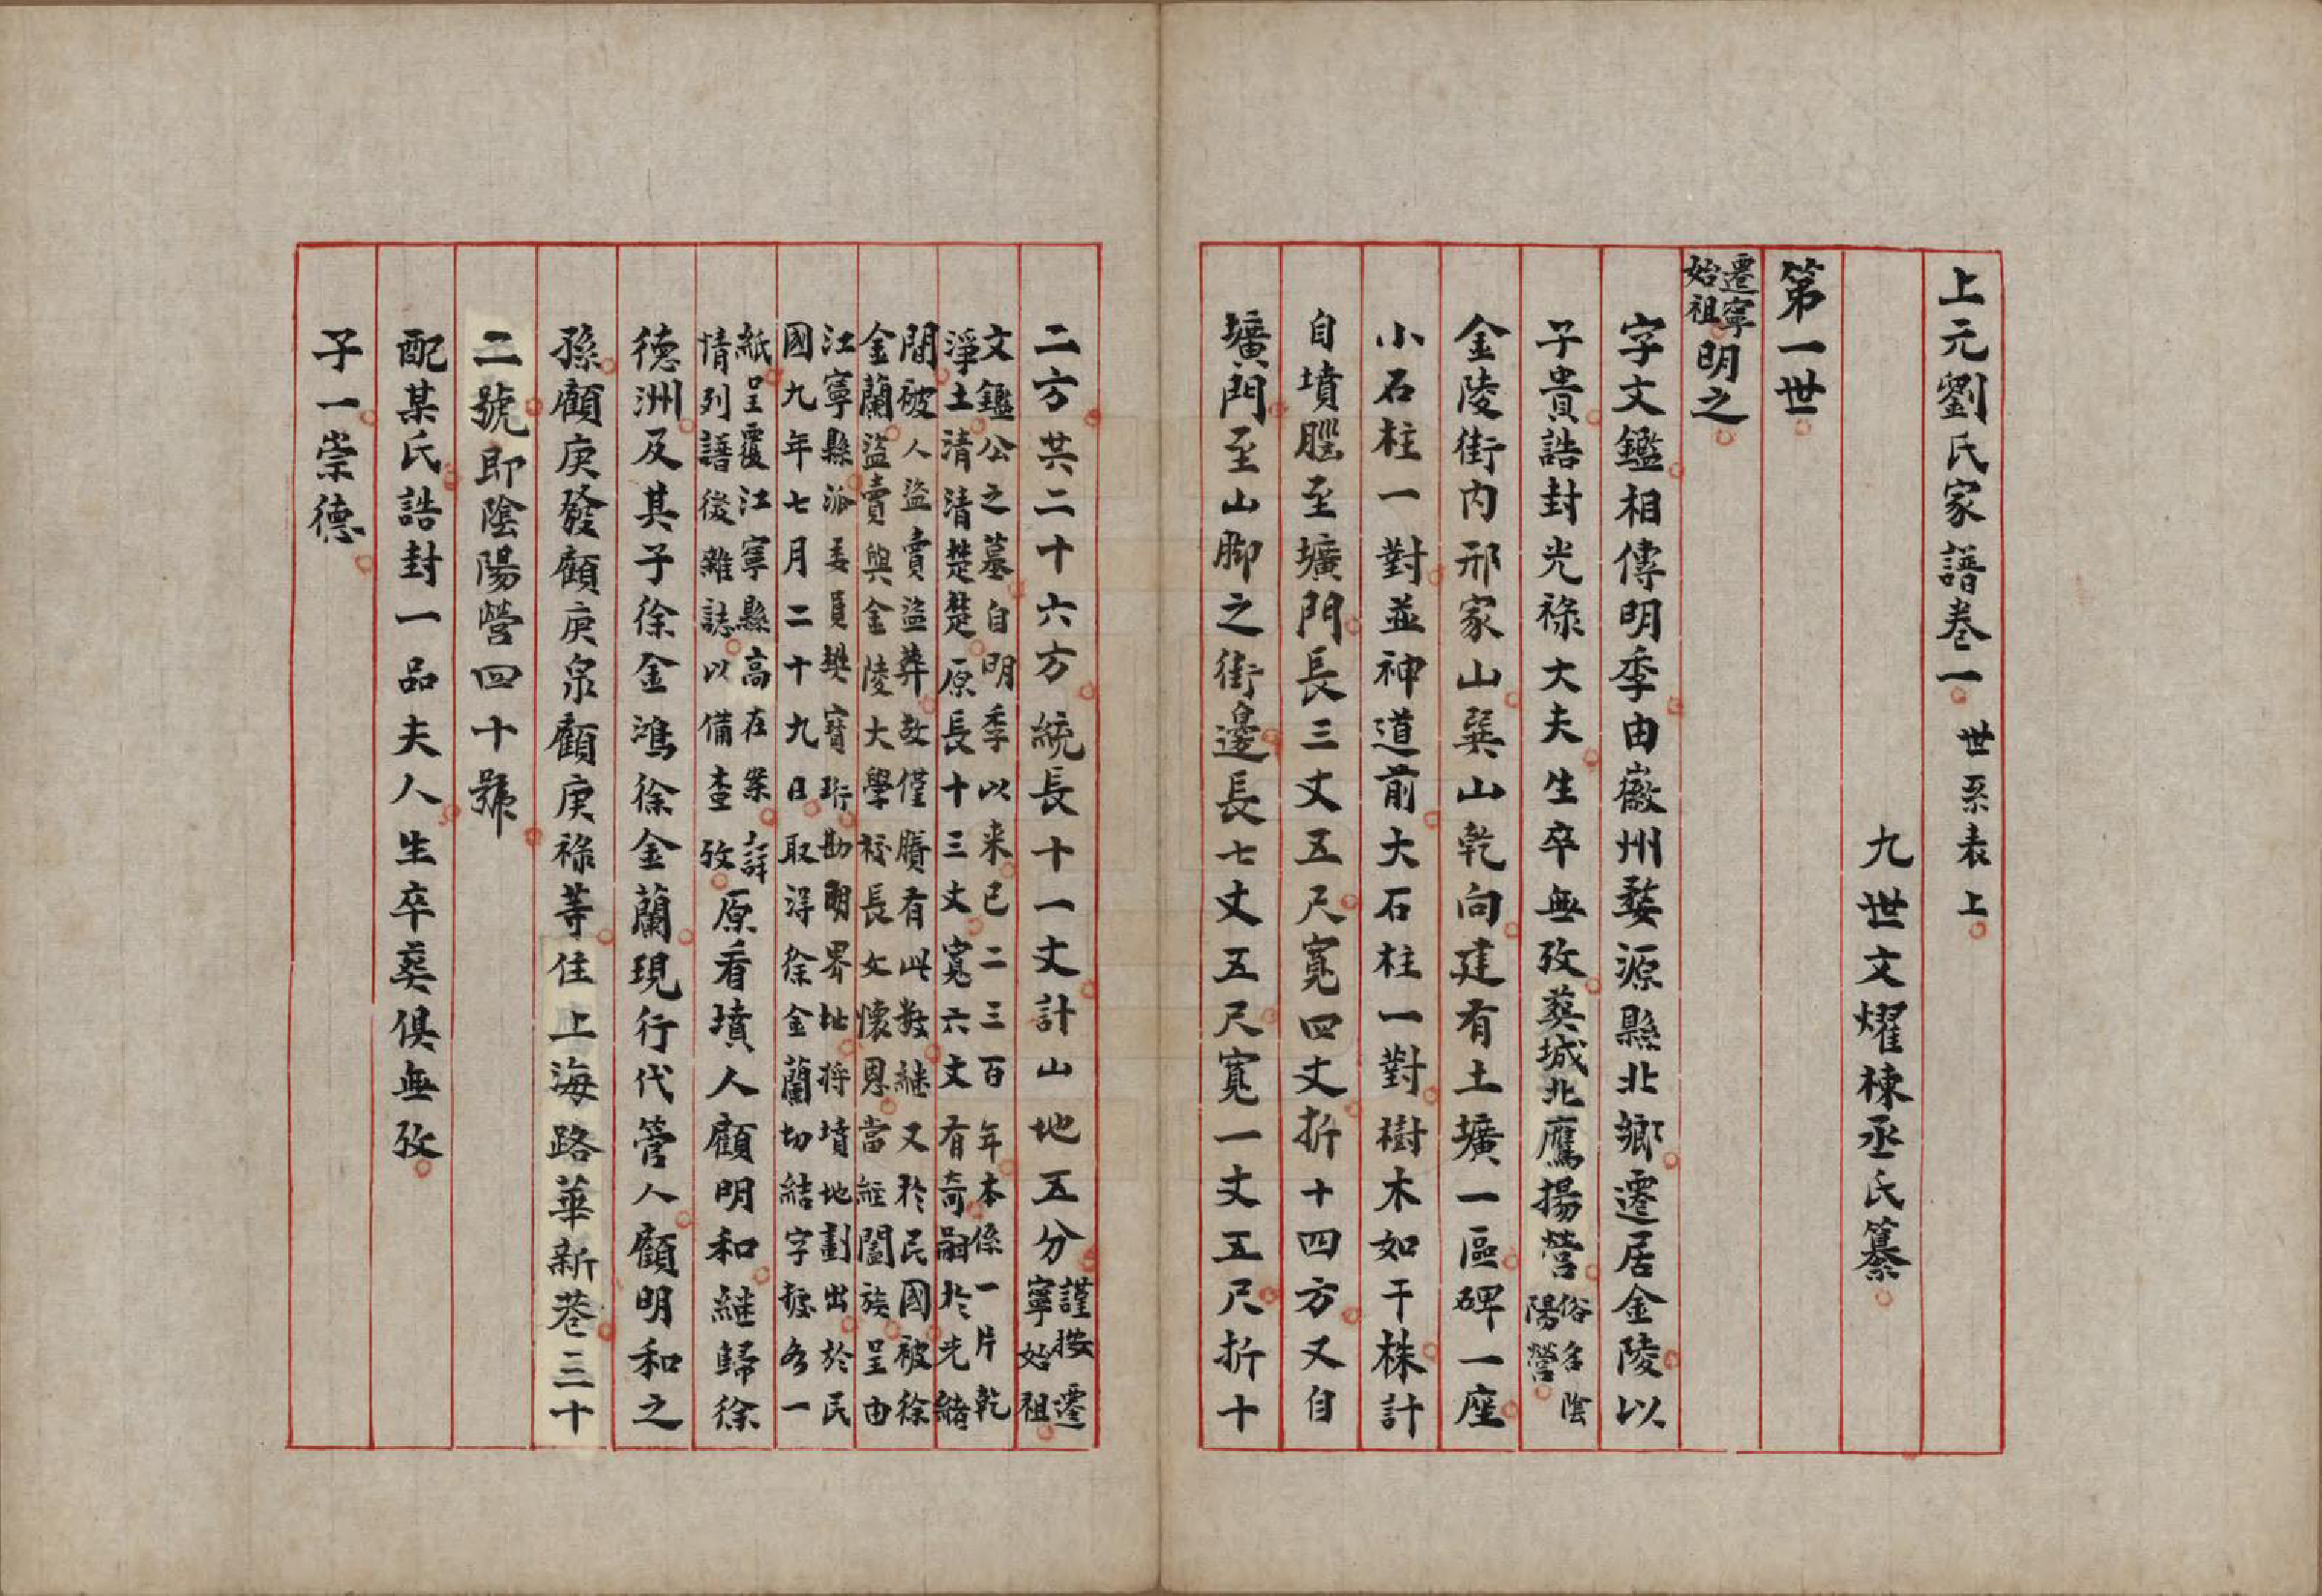 上元劉氏家譜卷一 世系表上
九世文燿棟丞氏纂
第一世
遷寧
始祖
明之
字文鑑相傳明季由徽州婺源縣北鄉遷居金陵以
子貴誥封光祿大夫生卒無攷葬城北鷹揚營
俗名陰
陽營
金陵街內邢家山巽山乾向建有土壙一區碑一座
小石柱一對並神道前大石柱一對樹木如干株計
自墳脛至壙門長三丈五尺寬四丈折十四方又自
壙門至山脚之街邊長七丈五尺寬一丈五尺折十
二方共二十六方統長十一丈計山地五分
謹按遷
寧始祖
文鑑公之墓自明季以来已二三百年本係一片乾
淨土清清楚楚原長十三丈寬六丈有奇嗣於光緒
間被人盜賣盜葬致僅賸有此數繼又於民國被徐
金蘭盜賣與金陵大學校長女懷恩當經闔族呈由
江寧縣派委員樊寶珩勘明界址將墳地劃出於民
國九年七月二十九日取淂徐金蘭切結字據各一
紙呈覆江寧縣高在案詳
情列譜後雜誌以備查攷
原看墳人顧明和繼歸徐
德洲及其子徐金鴻徐金蘭現行代管人顧明和之
孫顧庚發顧庚泉顧庚祿等住上海路華新巷三十
二號即陰陽營四十號
配某氏誥封一品夫人生卒葬俱無攷
子一崇德